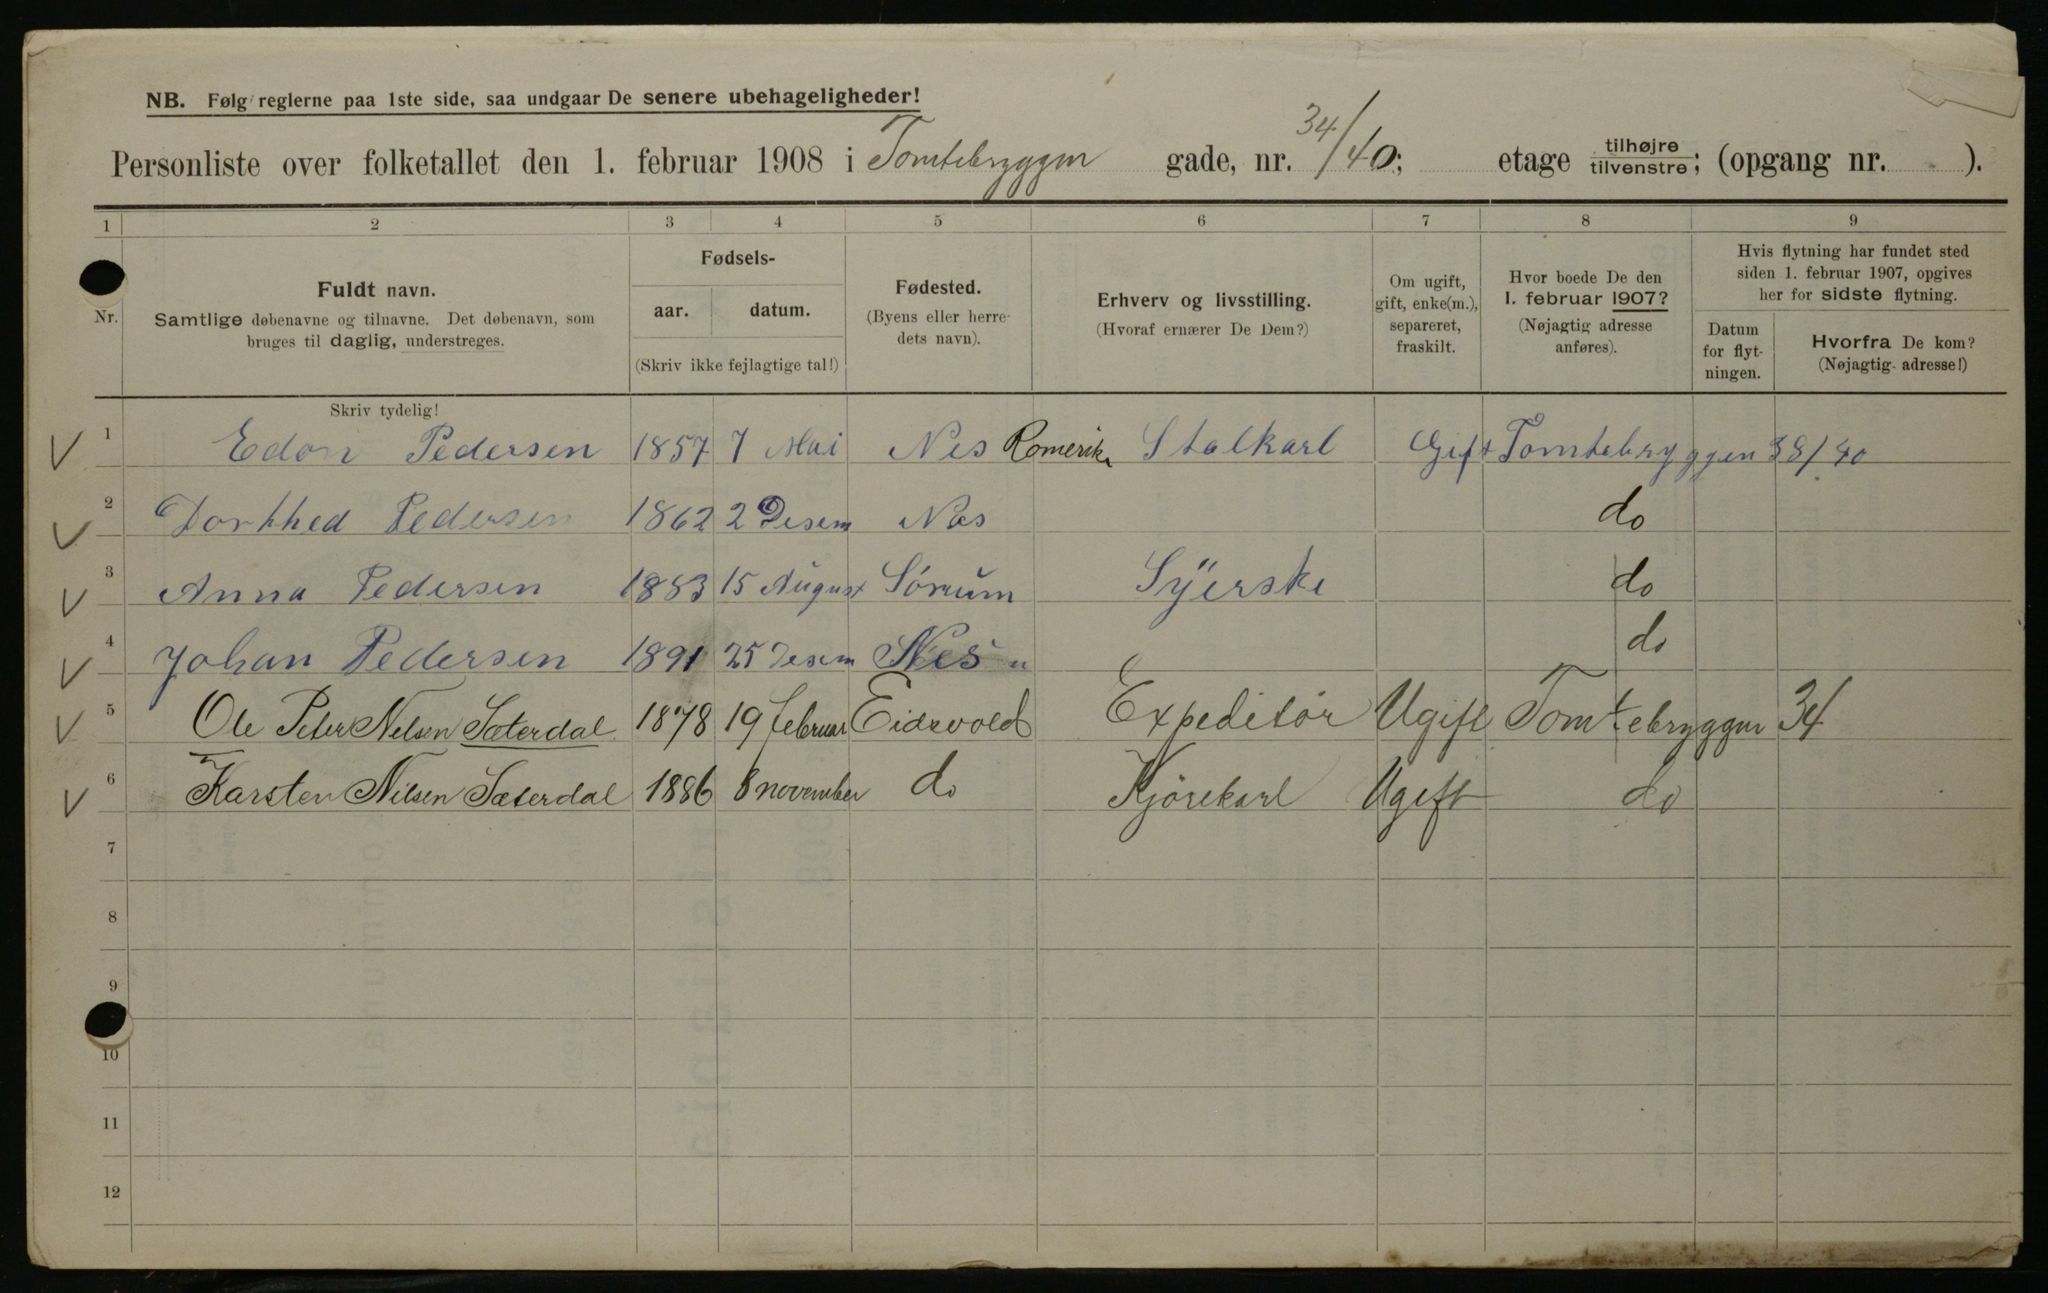 NB. Følg reglerne paa 1ste side, saa undgaar De senere ubehageligheder!
Personliste over folketallet den 1. februar 1908 i Tomtebryggen gade, nr. 34/40; etage tilhøjre tilvenstre; (opgang nr. ).
1 2 3 4 5 6 7 8 9
Nr.
Fuldt navn.
Samtlige døbenavne og tilnavne. Det døbenavn, som
bruges til daglig, understreges.
Fødsels-
aar. datum.
(Skriv ikke fejlagtige tal!)
Fødested.
(Byens eller herre-
dets navn).
Erhverv og livsstilling.
(Hvoraf ernærer De Dem?)
Om ugift,
gift, enke(m.),
separeret,
fraskilt.
Hvor boede De den
1. februar 1907?
(Nøjagtig adresse
anføres).
Hvis flytning har fundet sted
siden 1. februar 1907, opgives
her for sidste flytning.
Datum
for flyt-
ningen.
Hvorfra De kom?
(Nøjagtig adresse!)
Skriv tydelig!
1 Edon Pedersen 1857 7 Mai Nes Romerike Stalkarl Gift Tomtebryggen 38/40
2 Dorthed Pedersen 1862 2 Desem Nes do
3 Anna Pedersen 1883 15 August Sörum Syerske do
4 Johan Pedersen 1891 25 Desem Nes " do
5 Ole Peter Nelsen Sæterdal 1878 19 februar Eidsvold Expeditör Ugift Tomtebryggen 34
6 Karsten Nilsen Sæterdal 1886 8 november do Kjörekarl Ugift do
7
8
9
10
11
12